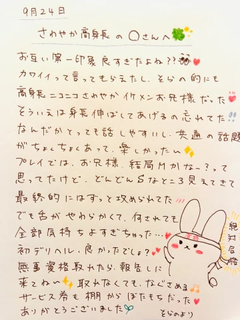 9月24日
さわやか高身長の〇さんへ
お互い第一印象良すぎたよね??
カワイイって言ってもらえたし、そらの的にも
高身長ニコニコさわやかイケメンお兄様だった
そういえば身長伸ばしてあげるの忘れてた
なんだかとっても話しやすいし、共通の話題
がちょくちょくあって、楽しかったぃ
プレイでは、お兄様、結局Mかな〜?って
思ってたけど、どんどんSなところ見えてきて
最終的にはずっと攻められてた!!!
でも舌がやわらかくて、何されても
全部気持ちよすぎちゃった…
初デリヘル、良かったでしょ?
無事資格取れたら、報告しに
来てね〜 取れなくても、なぐさめる
サービス券も棚からぼたもちだった
ありがとうございました
そらのより
絶対合格